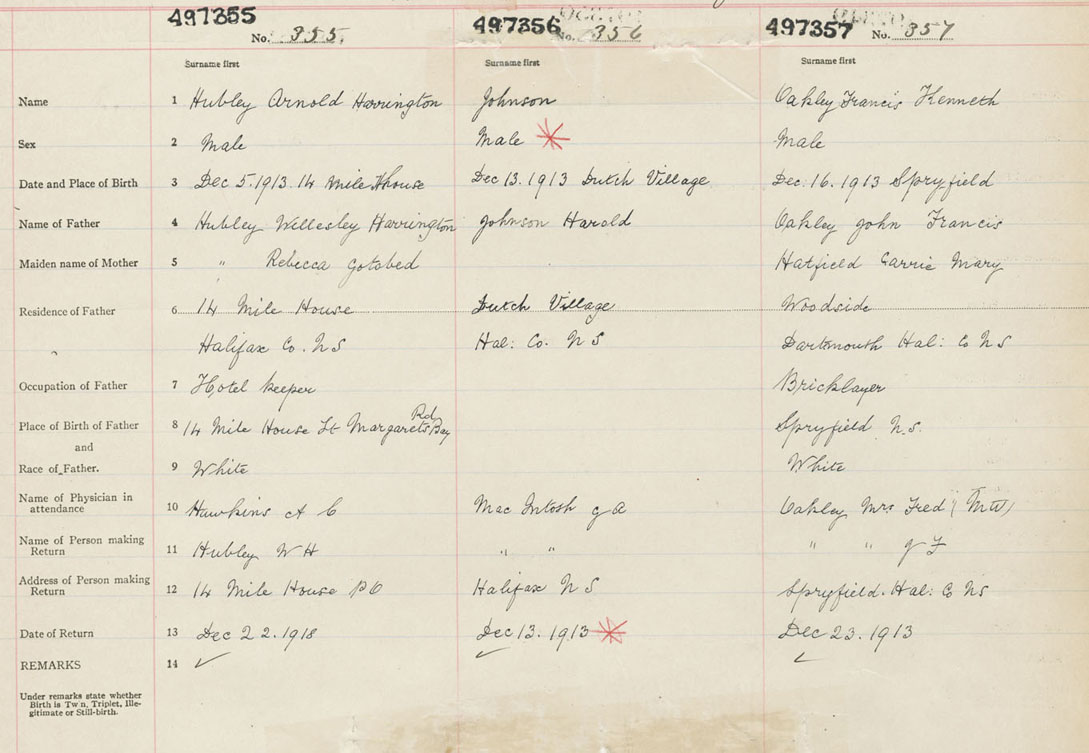 497355 497356 497357
No. 355. No. 356 No. 357
Surname first Surname first Surname first
Name 1 Hubley Arnold Harrington Johnson Oakley Francis Kenneth
Sex 2 Male Male Male
Date and Place of Birth 3 Dec 5. 1913. 14 Mile House Dec 13. 1913 Dutch Village Dec. 16. 1913 Spryfield
Name of Father 4 Hubley Wellesley Harrington Johnson Harold Oakley John Francis
Maiden name of Mother 5 " Rebecca Gotobed Hatfield Carrie Mary
Residence of Father 6 14 Mile House Dutch Village Woodside
Halifax Co. N S Hal: Co. N S Dartmouth Hal: Co N S
Occupation of Father 7 Hotel keeper Bricklayer
Place of Birth of Father 8 14 Mile House St Margarets Bay Rd Spryfield N.S.
and
Race of Father. 9 White White
Name of Physician in
attendance 10 Hawkins A C Mac Intosh G A Oakley Mrs Fred (MW)
Name of Person making
Return 11 Hubley W H " " " " J F
Address of Person making
Return 12 14 Mile House P O Halifax N S Spryfield. Hal: Co NS
Date of Return 13 Dec 22. 1918 Dec 13. 1913 Dec 23. 1913
REMARKS 14
Under remarks state whether
Birth is Twin, Triplet, Ille-
gitimate or Still-birth.